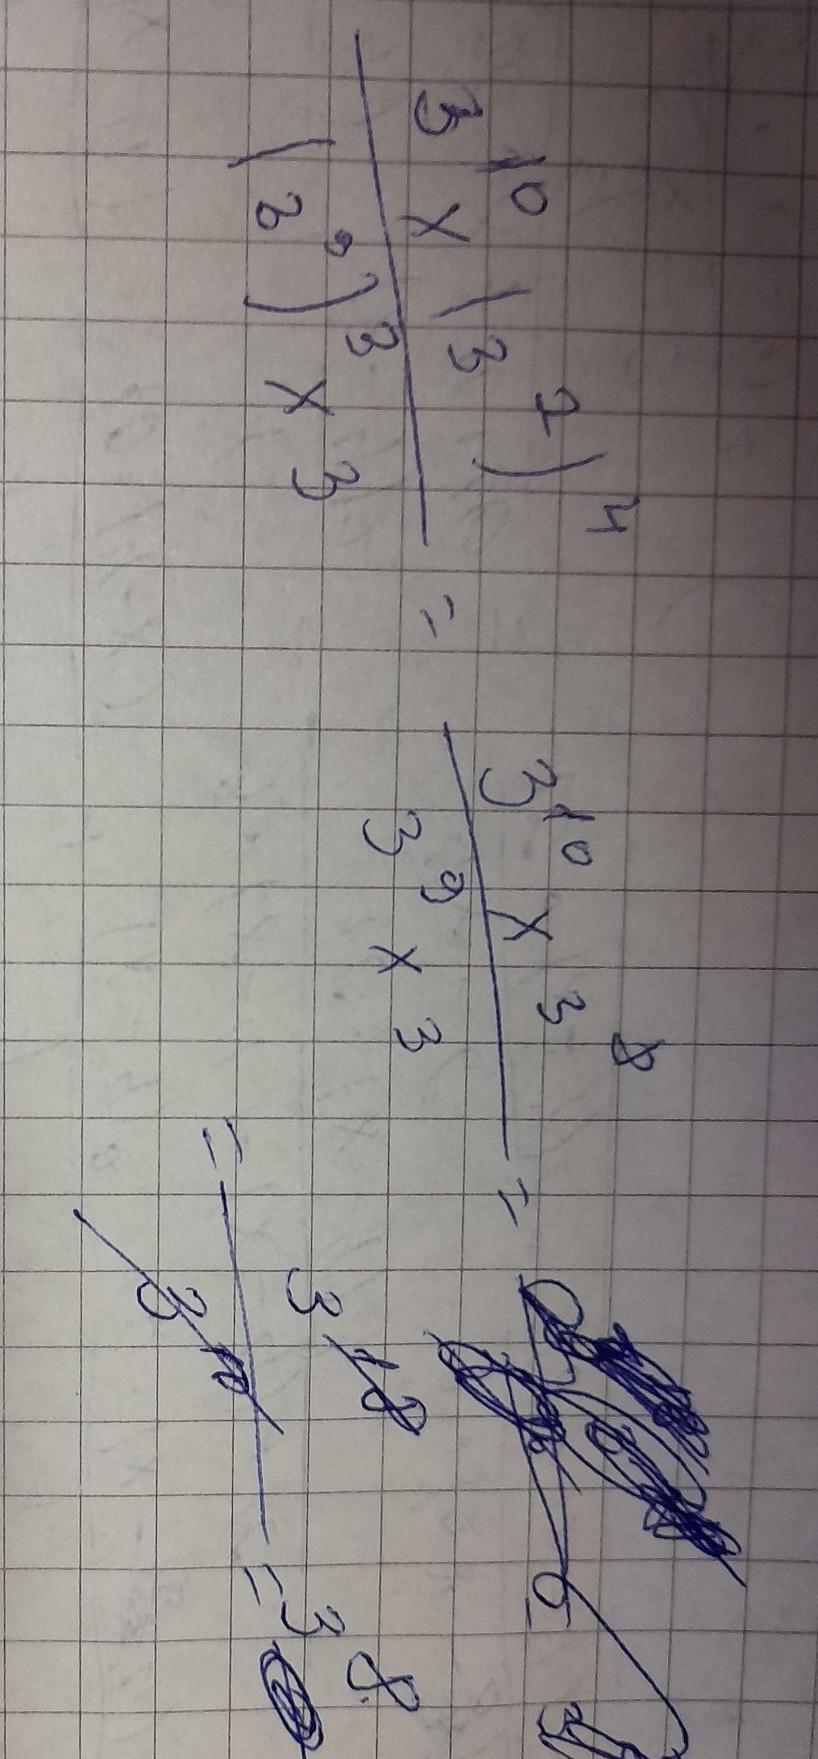 3^10 × (3^2)^4 / (3^9)^3 × 3 = 3^10 × 3^8 / 3^9 × 3 =
= 3^18 / 3^10 = 3^8